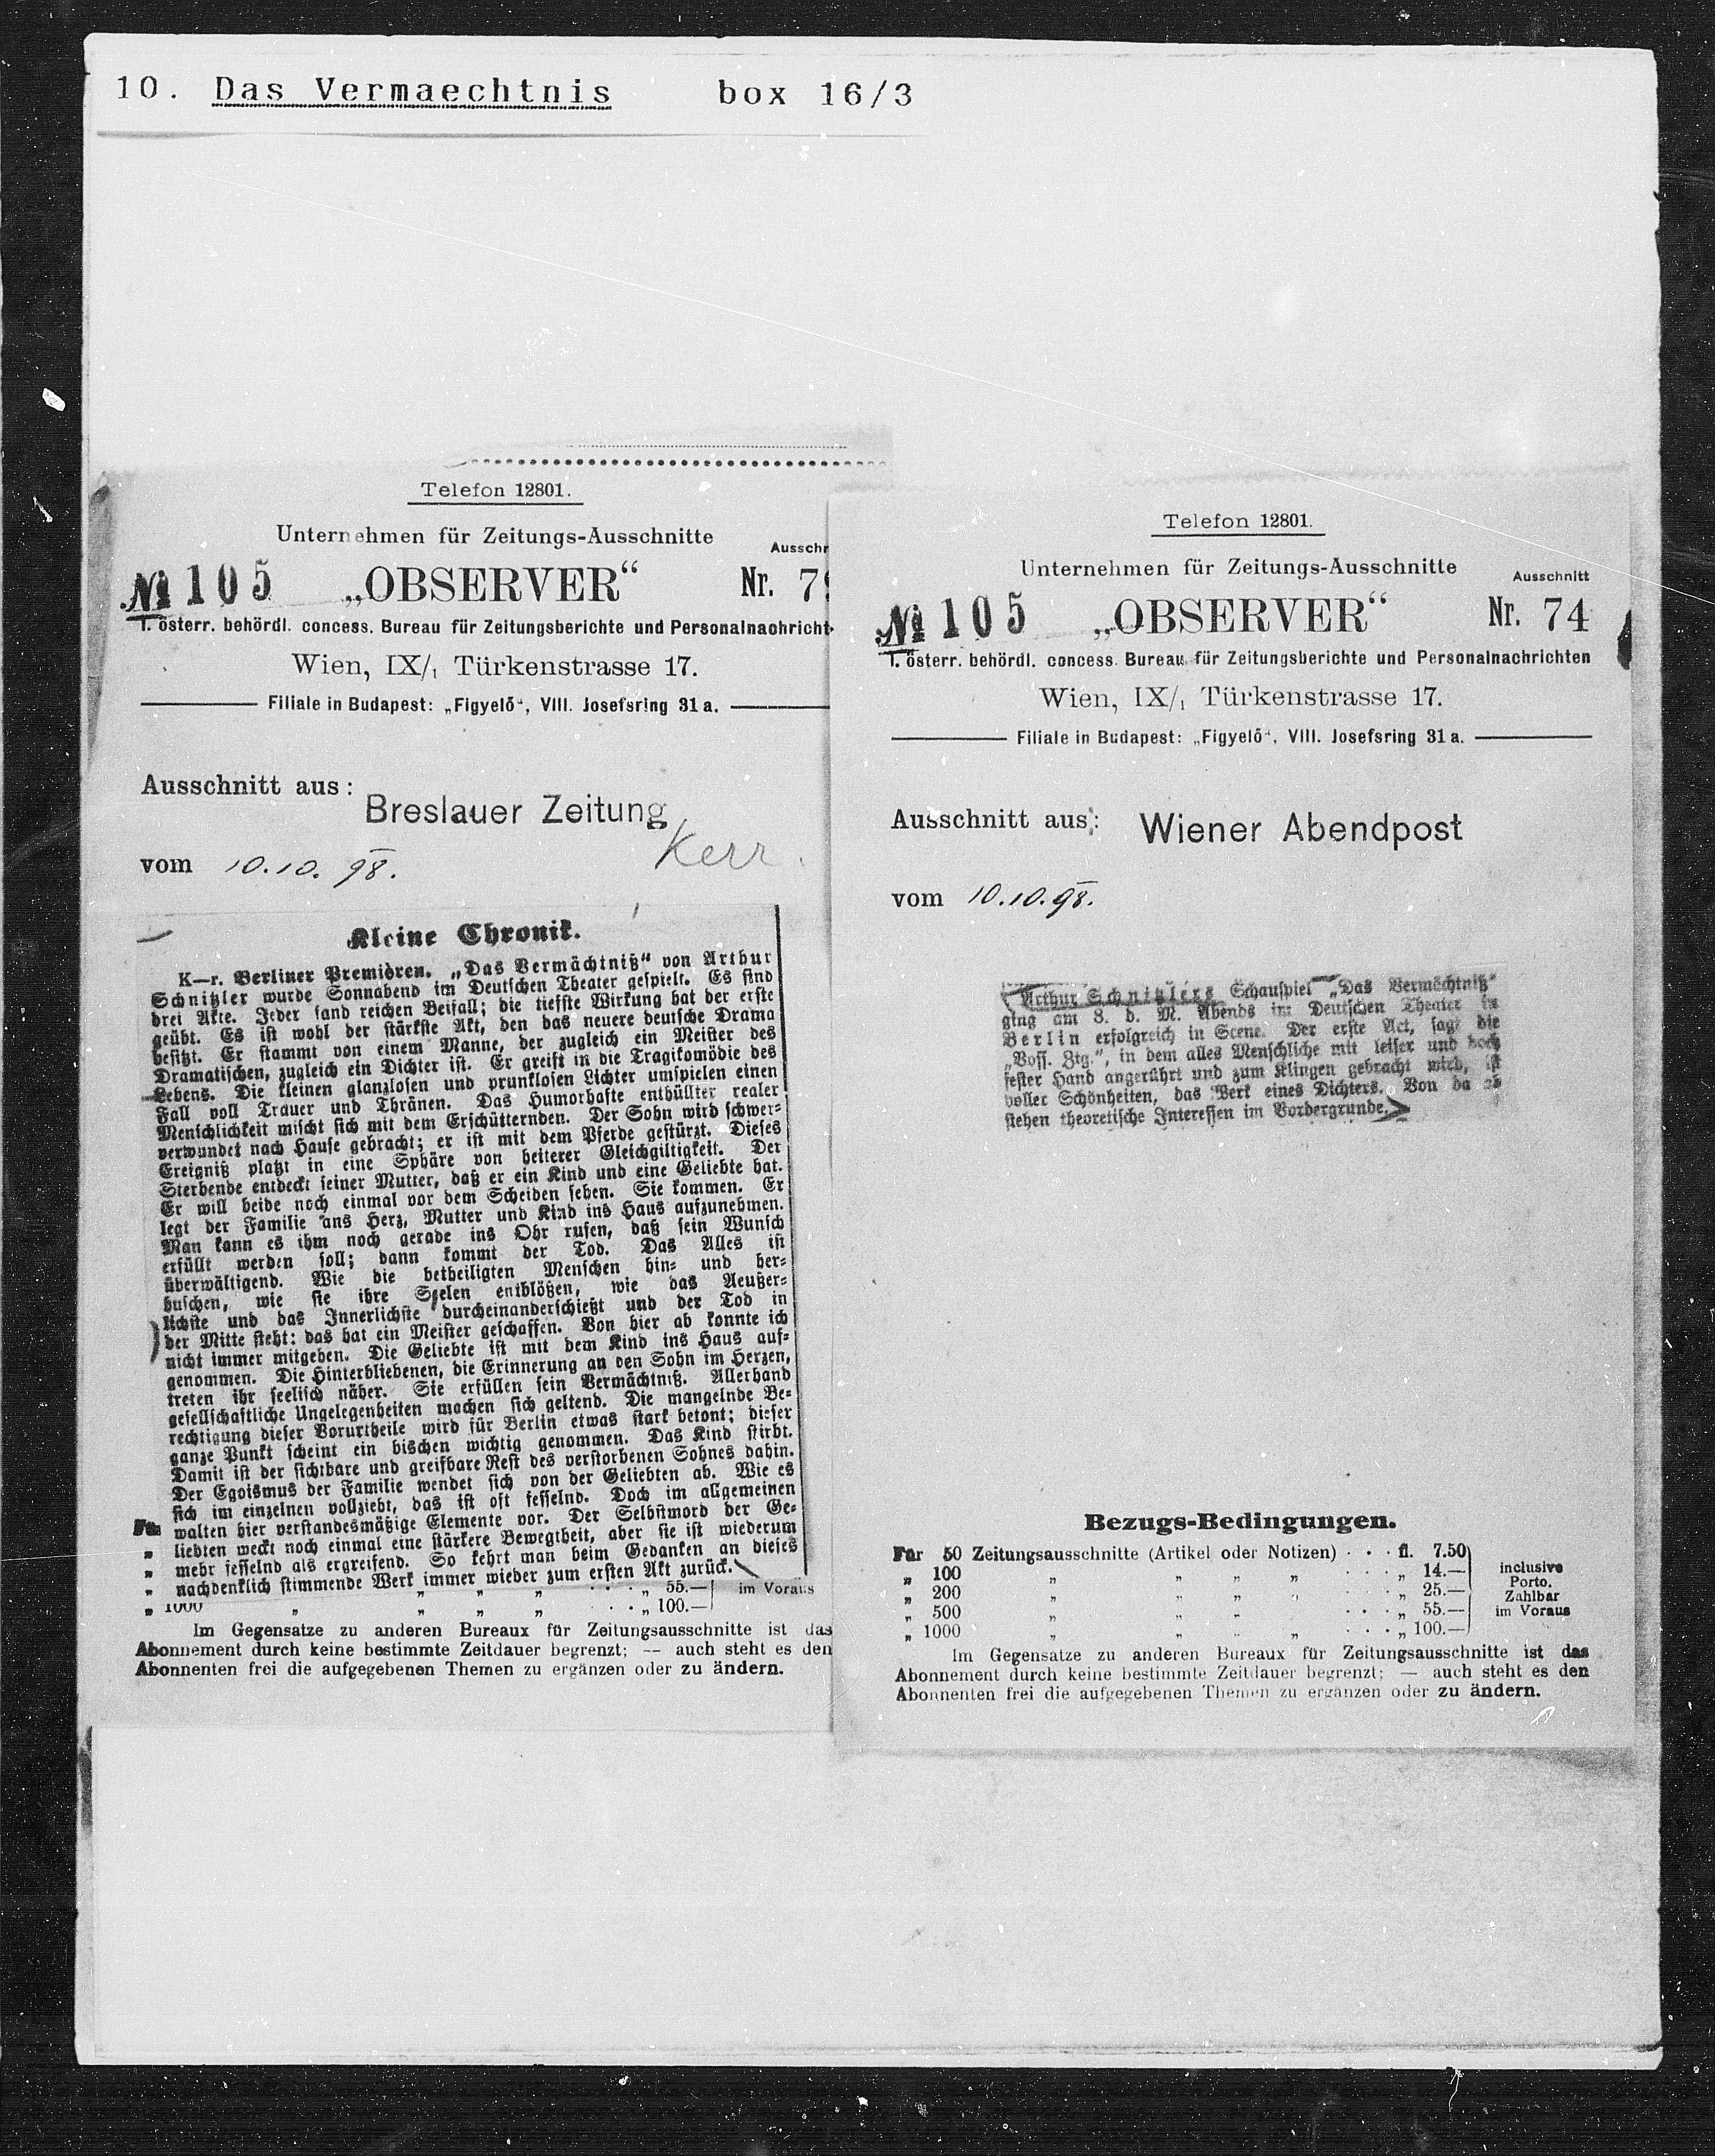 10. Das Vermaechtnis box 16/3
Telefon 12801.
Unternehmen für Zeitungs-Ausschnitte
Ausschn
№ 105 „OBSERVER“ Nr. 79
I. österr. behördl. concess. Bureau für Zeitungsberichte und Personalnachricht
Wien, IX/1 Türkenstrasse 17.
Filiale in Budapest: „Figyelő“, VIII. Josefsring 31 a.
Ausschnitt aus:
Breslauer Zeitung
Kerr.
vom 10.10.98.
Kleine Chronik.
K—r. Berliner Premièren. „Das Vermächtniß“ von Arthur
Schnitzler wurde Sonnabend im Deutschen Theater gespielt. Es sind
drei Akte. Jeder fand reichen Beifall; die tiefste Wirkung hat der erste
geübt. Es ist wohl der stärkste Akt, den das neuere deutsche Drama
besitzt. Er stammt von einem Manne, der zugleich ein Meister des
Dramatischen, zugleich ein Dichter ist. Er greift in die Tragikomödie des
Lebens. Die kleinen glanzlosen und prunklosen Lichter umspielen einen
Fall voll Trauer und Thränen. Das Humorhafte enthüllter realer
Menschlichkeit mischt sich mit dem Erschütternden. Der Sohn wird schwer-
verwundet nach Hause gebracht; er ist mit dem Pferde gestürzt. Dieses
Ereigniß platzt in eine Sphäre von heiterer Gleichgiltigkeit. Der
Sterbende entdeckt seiner Mutter, daß er ein Kind und eine Geliebte hat.
Er will beide noch einmal vor dem Scheiden sehen. Sie kommen. Er
legt der Familie ans Herz, Mutter und Kind ins Haus aufzunehmen.
Man kann es ihm noch gerade ins Ohr rufen, daß sein Wunsch
erfüllt werden soll; dann kommt der Tod. Das Alles ist
überwältigend. Wie die betheiligten Menschen hin- und her-
huschen, wie sie ihre Seelen entblößen, wie das Aeußer-
lichste und das Innerlichste durcheinanderschießt und der Tod in
der Mitte steht: das hat ein Meister geschaffen. Von hier ab konnte ich
nicht immer mitgehen. Die Geliebte ist mit dem Kind ins Haus auf-
genommen. Die Hinterbliebenen, die Erinnerung an den Sohn im Herzen,
treten ihr seelisch näher. Sie erfüllen sein Vermächtniß. Allerhand
gesellschaftliche Ungelegenheiten machen sich geltend. Die mangelnde Be-
rechtigung dieser Vorurtheile wird für Berlin etwas stark betont; dieser
ganze Punkt scheint ein bischen wichtig genommen. Das Kind stirbt.
Damit ist der sichtbare und greifbare Rest des verstorbenen Sohnes dahin.
Der Egoismus der Familie wendet sich von der Geliebten ab. Wie es
sich im einzelnen vollzieht, das ist oft fesselnd. Doch im allgemeinen
walten hier verstandesmäßige Elemente vor. Der Selbstmord der Ge-
liebten weckt noch einmal eine stärkere Bewegtheit, aber sie ist wiederum
mehr fesselnd als ergreifend. So kehrt man beim Gedanken an dieses
nachdenklich stimmende Werk immer wieder zum ersten Akt zurück.
Für
„
„
„ „ „ „ . . . „ 55.— im Voraus
„ 1000 „ „ „ „ . . . „ 100.—
Im Gegensatze zu anderen Bureaux für Zeitungsausschnitte ist das
Abonnement durch keine bestimmte Zeitdauer begrenzt; — auch steht es den
Abonnenten frei die aufgegebenen Themen zu ergänzen oder zu ändern.
Telefon 12801.
Unternehmen für Zeitungs-Ausschnitte
Ausschnitt
№ 105 „OBSERVER“ Nr. 74
I. österr. behördl. concess. Bureau für Zeitungsberichte und Personalnachrichten
Wien, IX/1 Türkenstrasse 17.
Filiale in Budapest: „Figyelő“, VIII. Josefsring 31 a.
Ausschnitt aus: Wiener Abendpost
vom 10.10.98.
Arthur Schnitzlers Schauspiel „Das Vermächtniß“
ging am 8. d. M. Abends im Deutschen Theater in
Berlin erfolgreich in Scene. Der erste Act, sagt die
„Voss. Ztg.“, in dem alles Menschliche mit leiser und doch
fester Hand angerührt und zum Klingen gebracht wird, ist
voller Schönheiten, das Werk eines Dichters. Von da ab
stehen theoretische Interessen im Vordergrunde.
Bezugs-Bedingungen.
Für 50 Zeitungsausschnitte (Artikel oder Notizen) . . . fl. 7.50 inclusive
„ 100 „ „ „ „ . . . „ 14.— Porto.
„ 200 „ „ „ „ . . . „ 25.— Zahlbar
„ 500 „ „ „ „ . . . „ 55.— im Voraus
„ 1000 „ „ „ „ . . . „ 100.—
Im Gegensatze zu anderen Bureaux für Zeitungsausschnitte ist das
Abonnement durch keine bestimmte Zeitdauer begrenzt; — auch steht es den
Abonnenten frei die aufgegebenen Themen zu ergänzen oder zu ändern.